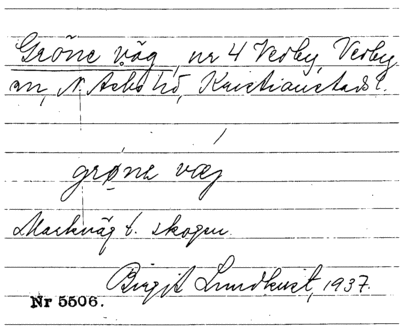 Gröne väg, nr 4 Vedby, Vedby
sn, N. Åsbo hd, Kristianstads l.
grøna væj
Markväg t. skogen.
Birgit Lundkvist, 1937.
Nr 5506.